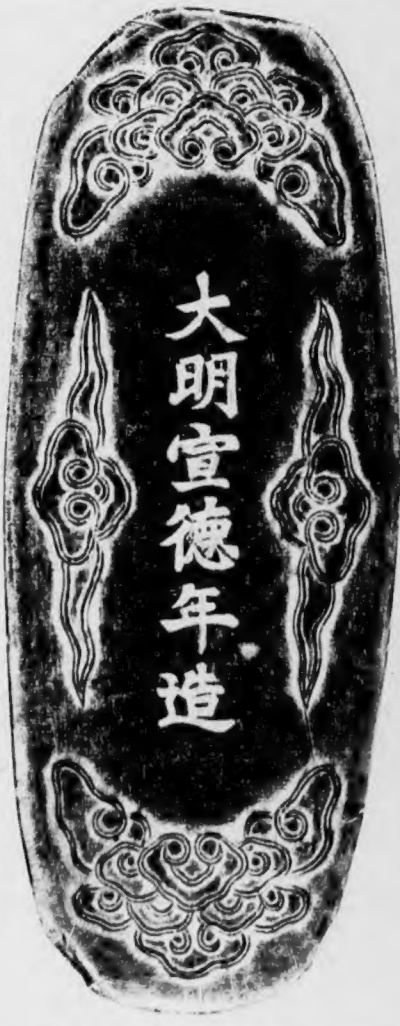 大明宣德年造